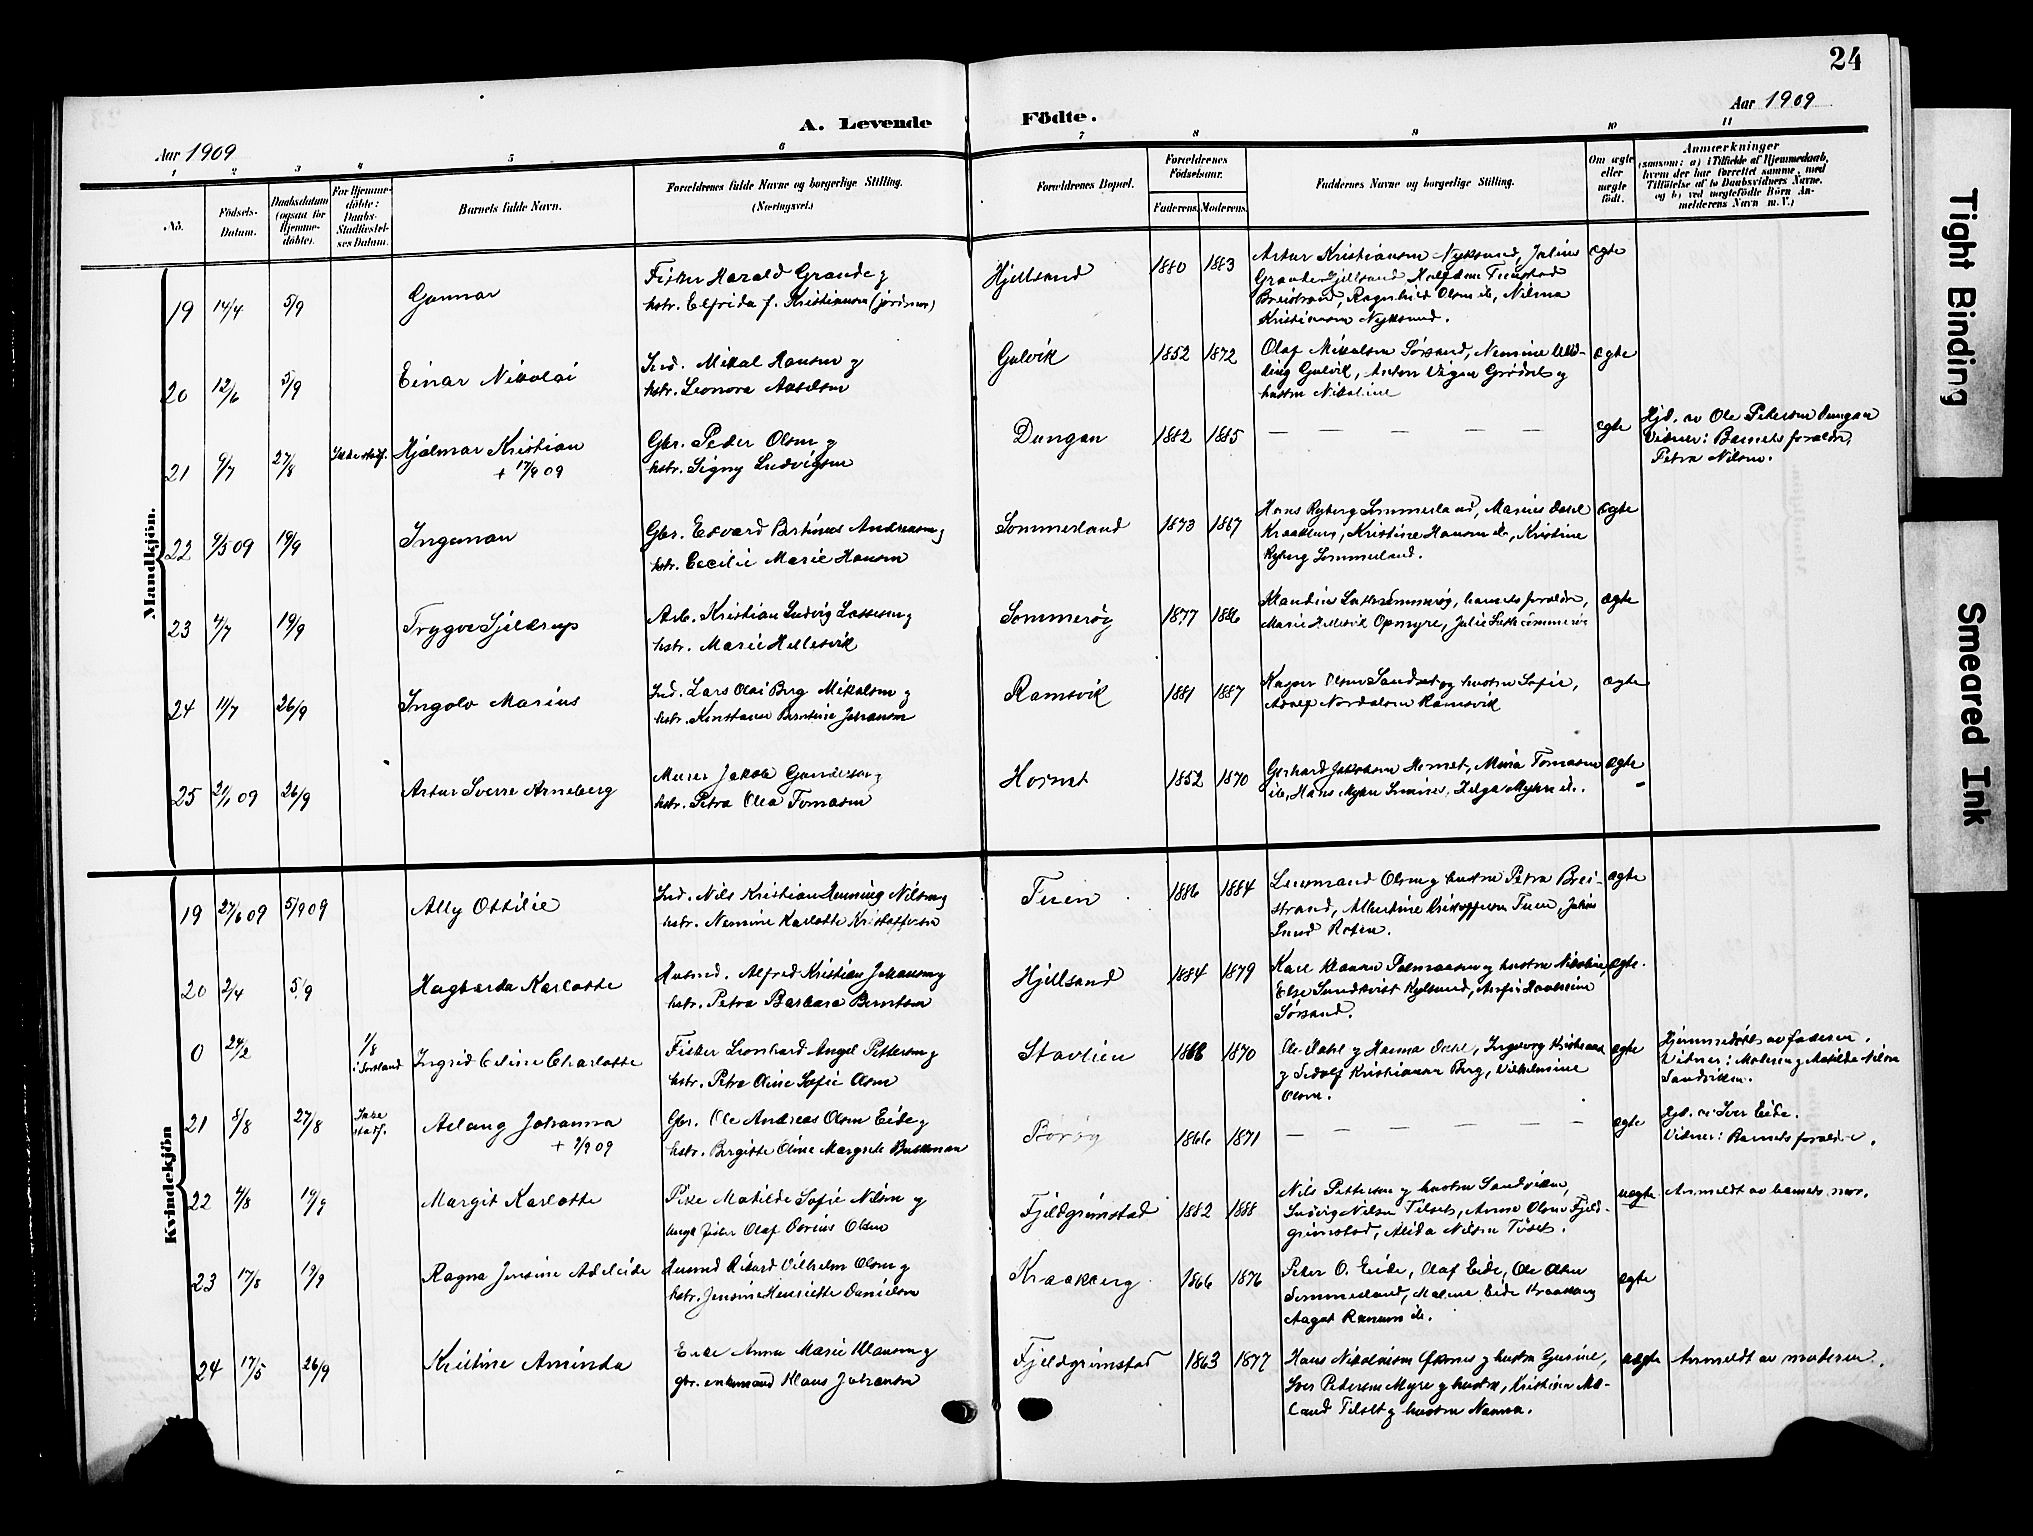 24
Aar 1909
A. Levende Födte.
Aar 1909
1 2 3 4 5 6 7 8 9 10 11
No.
Födsels-
Datum.
Daabsdatum
(ogsaa for
Hjemme-
döbte).
For Hjemme-
döbte:
Daabs-
Stadfæstel-
ses Datum.
Barnets fulde Navn.
Forældrenes fulde Navne og borgerlige Stilling.
(Næringsvei.)
Forældrenes Bopæl.
Forældrenes
Födselsaar.
Faderens. Moderens.
Faddernes Navne og borgerlige Stilling.
Om ægte
eller
uægte
födt.
Anmærkninger
(saasom: a) i Tilfælde af Hjemmedaab,
hvem der har forrettet samme, med
Tilföielse af to Daabsvidners Navne,
og b) ved uægtefödte Börn An-
melderens Navn m. V.)
Mandkjön.
19 14/4 5/9 Gunnar
Fisker Harald Grande og
hstr. Elfrida f. Kristiansen (jordmor)
Hjellsand 1880 1883
Artur Kristiansen Nyksund, Julius
Grande Hjellsand, Halfdan
Breistrand, Ragnhild Olsen ib, Nilma
Kristiansen Nyksund.
ægte
20 12/6 5/9 Einar Nikolai
Ind. Mikal Hansen og
hstr. Leonora Axelsen
Gulvik 1852 1872
Olaf Mikalsen Sørsand, Nemine
Gulvik, Anton og
hustru Nikoline
ægte
21 9/7 27/8 Ikke stadf. Hjalmar Kristian
+ 17/9 09
Gbr. Peder Olsen og
hstr. Signy Ludvigsen
Dungan 1882 1885
— — — — —
ægte
Hjd. av Ole Petersen Dungan
Vidner: Barnets forældre,
Petra Nilsen.
22 9/5 09 19/9 Ingeman
Gbr. Edvard Bertinus Andreasen og
hstr. Cecilie Marie Hansen
Sommerland 1873 1867
Hans Ryberg Sommerland, Marius Dahl
Kraakberg, Kristine Hansen ib, Kristine
Ryberg Sommerland.
ægte
23 4/7 19/9 Trygve Sjeldrup
Arb. Kristian Ludvig Lassesen og
hstr. Marie Hellesvik
Sommerøy 1877 1886
Klaudius Sommerøy, barnets forældre,
Marie Hellesvik Opmyre, Julie Sommerøy
ægte
24 11/7 26/9 Ingolv Marius
Ind. Lars Olai Berg Mikalsen og
hstr. Konstanse Berntine Johansen
Ramsvik 1881 1887
Kasper Olsen Sandset og hustru Sofie,
Adolf Nordalsen Ramsvik
ægte
25 21/1 09 26/9 Artur Sverre Arneberg
Murer Jakob Gundersen og
hstr. Petra Olea Tomasen
Hornet 1852 1870
Gerhard Jakobsen Hornet, Maria Tomasen
ib, Hans Myhre, Helga Myhre ib.
ægte
Kvindekjön
19 27/6 09 5/9 09 Ally Ottilie
Ind. Nils Kristian Henning Nilsen og
hstr. Nemine Karlotte Kristoffersen
Tuen 1886 1884
Leonard Olsen og hustru Petra Brei-
strand, Albertine Kristoffersen Tuen, Julius
Lund
ægte
20 2/4 5/9 Hagbarda Karlotte
Husmd. Alfred Kristian Johansen og
hstr. Petra Barbara Berntsen
Hjellsand 1884 1879
Karl Klausen og hustru Nikoline,
Else Lundkvist
Sørsand.
ægte.
0 24/2 1/8
i Sortland Ingrid Celine Charlotte
Fisker Leonhard Angel Pettersen og
hstr. Petra Oline Sofie Olsen
Stavlien 1868 1870
Ole Dahl og Hanna Dahl, Ingeborg Kristiansen
og Sedolf Kristiansen Berg, Vilhelmine
Olsen.
ægte
Hjemmedøbt av faderen.
Vidner: Malene og Matilde Nilsen
Sandviken.
21 8/8 27/8 Ikke
stadf. Aslaug Johanna
+ 7/9 09
Gbr. Ole Andreas Olsen Eide og
hstr. Bergitte Oline Margrete Buschman
Børøy 1866 1871
— — — — — —
ægte
Hjd. av Iver Eide.
Vidner: Barnets forældre.
22 4/8 19/9 Margit Karlotte
Pike Matilde Sofie Nilsen og
ungk. fisker Olaf Dorius Olsen
Fjeldgrimstad 1882 1888
Nils Petterson og hustru Sandviken,
Ludvig Nilsen Tilset, Anna Olsen Fjeld-
grimstad, Alida Nilsen Tilset.
uægte
Anmeldt av barnets mor.
23 17/8 19/9 Ragna Jensine Adeleide
Husmd Rikard Vilhelm Olsen og
hstr. Jensine Henriette Danielsen
Kraakberg 1866 1876
Peter O. Eide, Olaf Eide, Ole Olsen
Sommerland, Malene Eide Kraakberg
Aagot Ramsen ib.
ægte
24 17/5 26/9 Kristine Aminda
Enke Anna Marie Klausen og
gbr. enkemand Klaus Johansen
Fjeldgrimstad 1863 1877
Hans Nikolaisen og hustru,
Iver Pedersen Myre og hustru, Kristine Me-
land Tilset og hustru Nanna.
uægte
Anmeldt av moderen.
Tight Binding
Smeared Ink